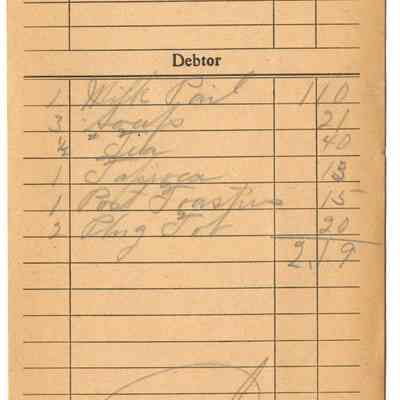 Debtor
1 Milk Pail 1 10
3 Soaps 21
1/2 # Tea 40
1 Tapioca 13
1 Post Toasties 15
2 Plug Tob 20
2.19